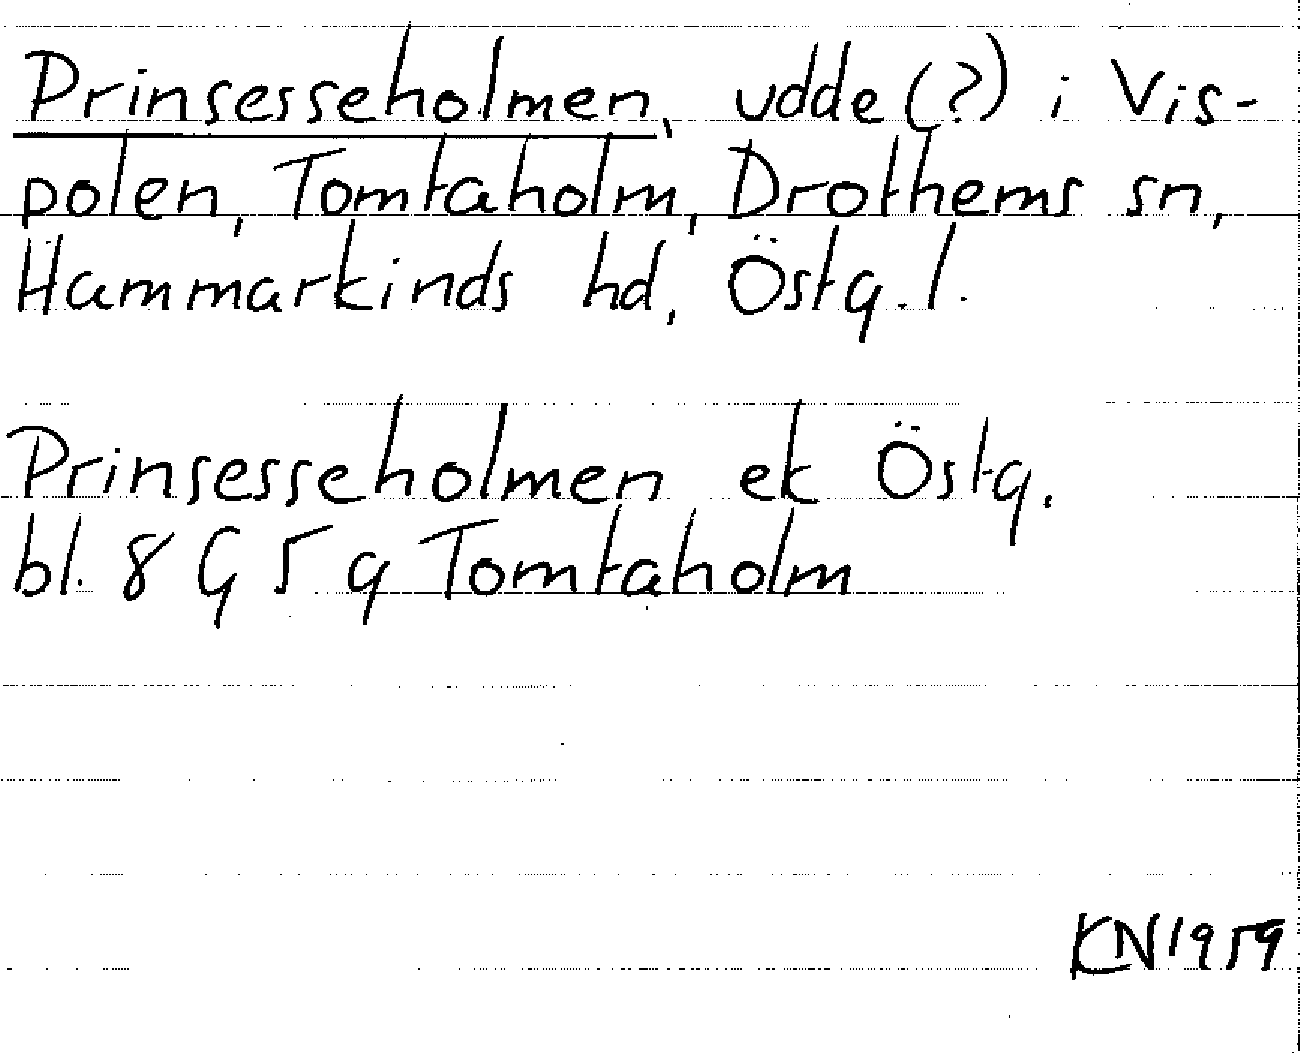 Prinsesseholmen, udde (?) i Vis-
polen, Tomtaholm, Drothems sn,
Hammarkinds hd, Östg. l.
Prinsesseholmen ek Östg.
bl. 8 G 5 g Tomtaholm
KN 1959